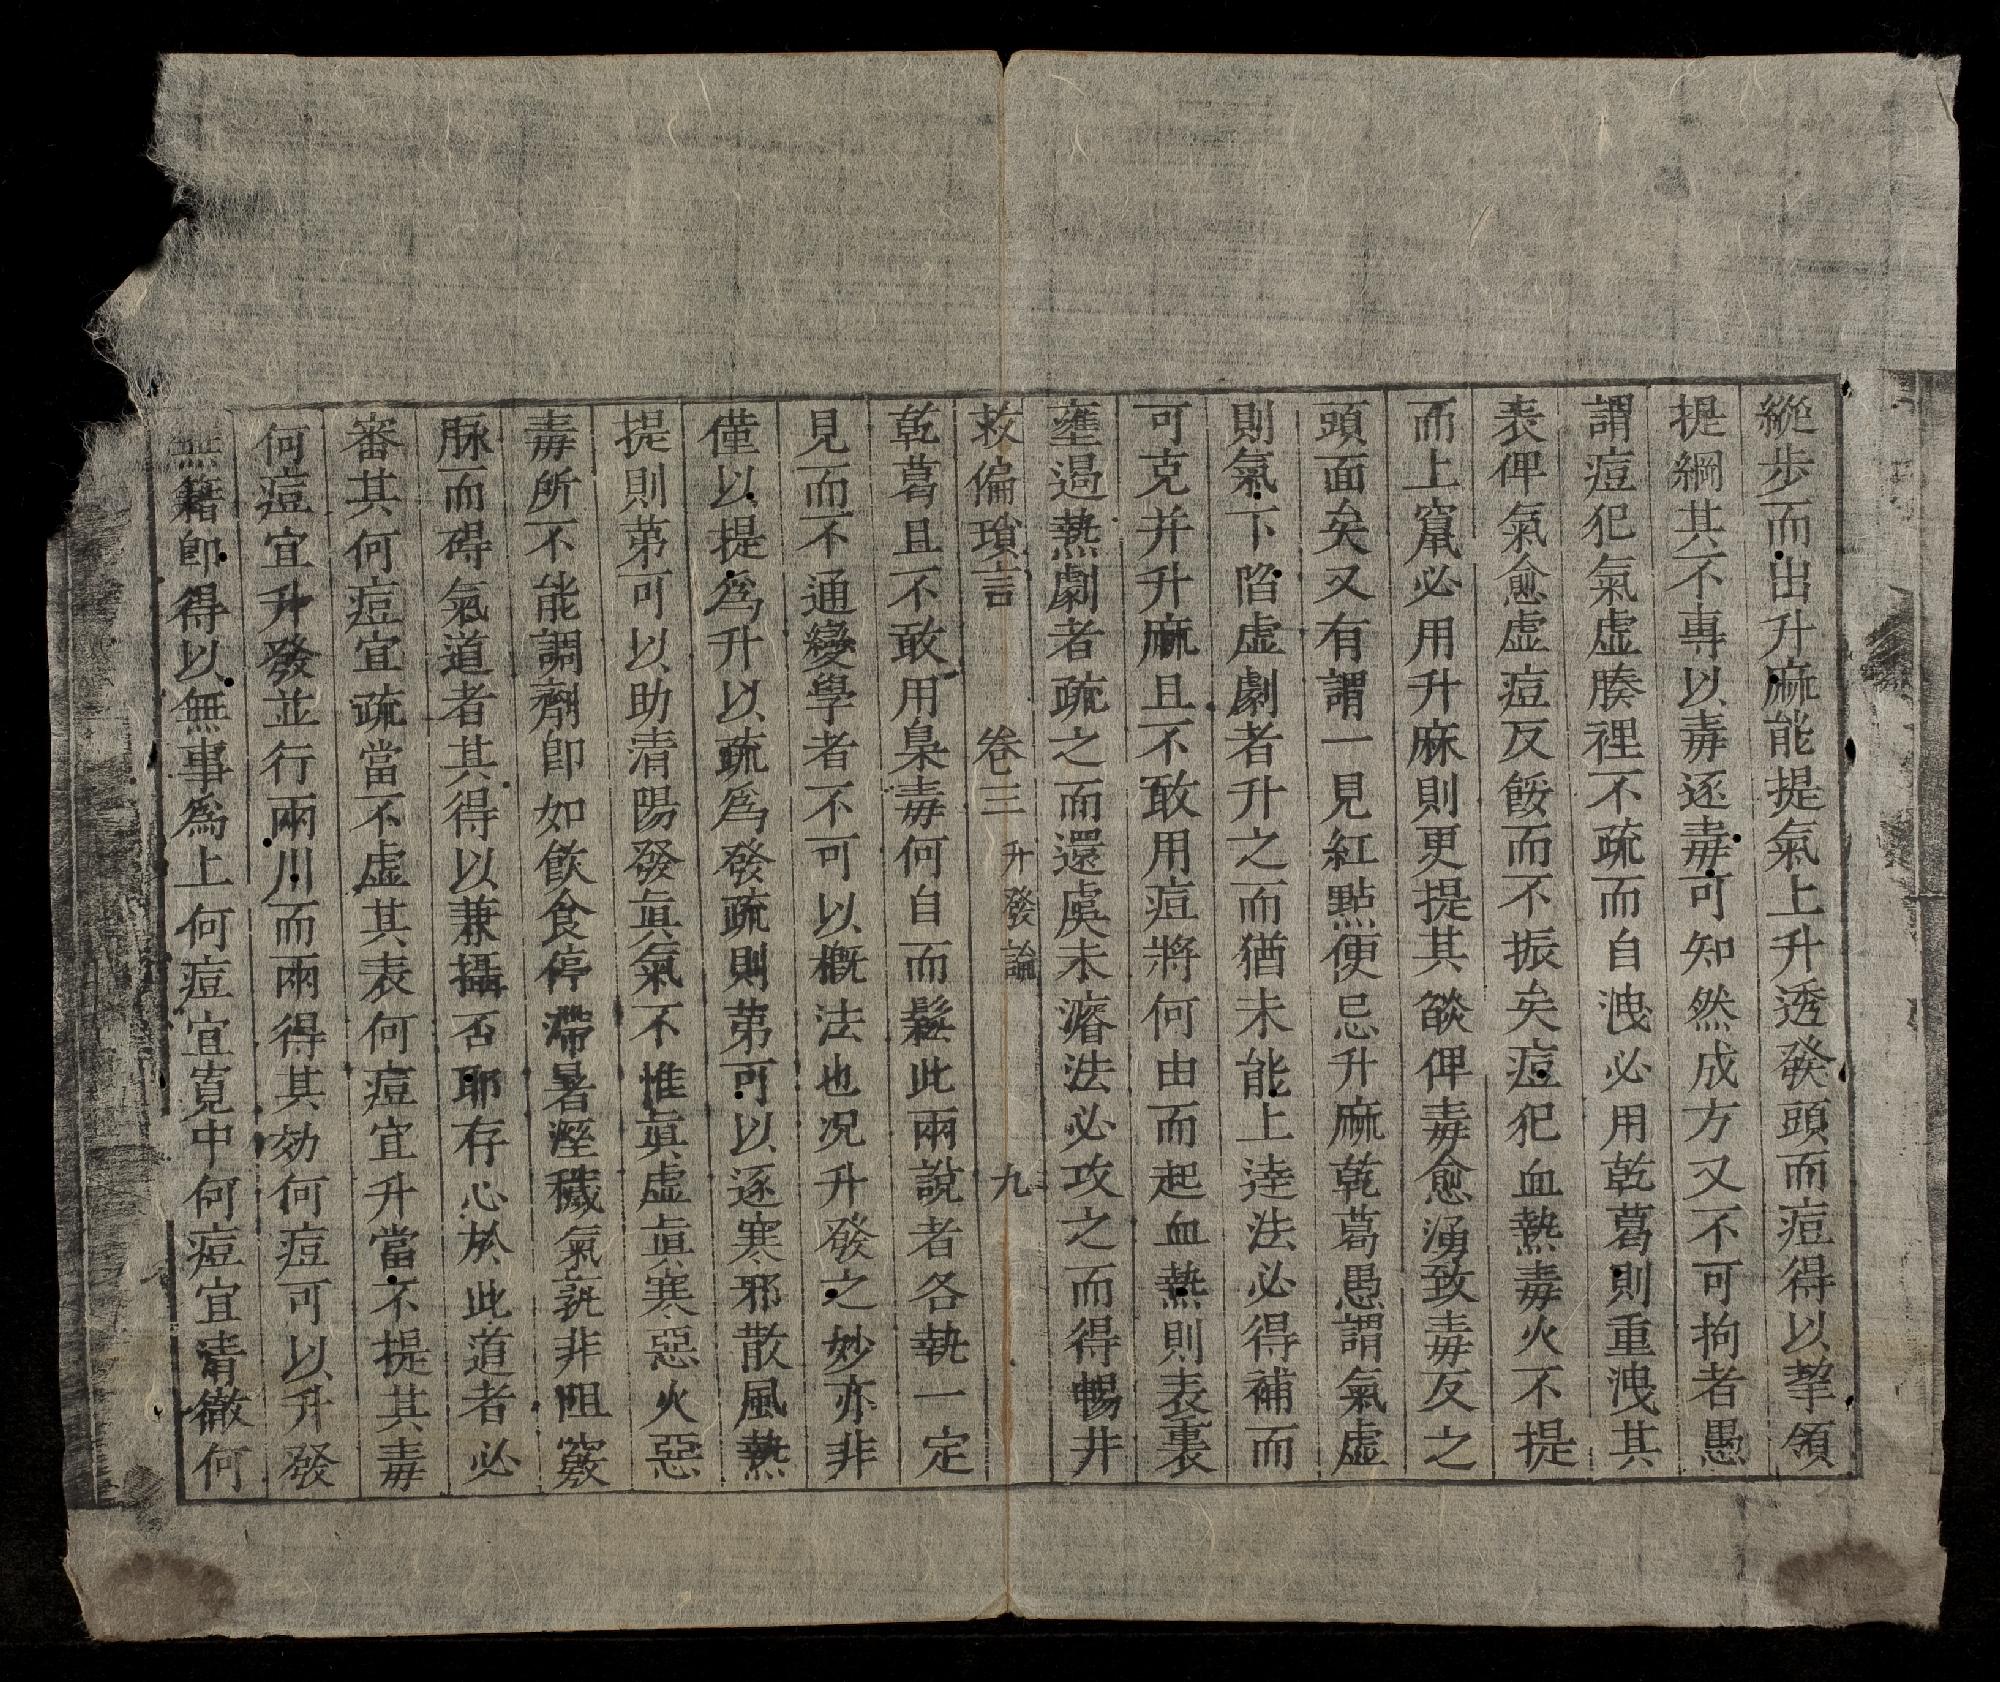 縱步而出升麻能提氣上升透發頭而痘得以挈領
提綱其不專以毒逐毒可知然成方又不可拘者愚
謂痘犯氣虛腠裡不疏而自洩必用乾葛則重洩其
表俾氣愈虛痘反餒而不振矣痘犯血熱毒火不提
而上竄必用升麻則更提其燄俾毒愈湧致毒反之
頭面矣又有謂一見紅點便忌升麻乾葛愚謂氣虛
則氣下陷虛劇者升之而猶未能上逹法必得補而
可克并升麻且不敢用痘將何由而起血熱則表裏
壅遏熱劇者疏之而還虞未濬法必攻之而得暢并
救偏瑣言 卷三 升發論 九
乾葛且不敢用梟毒何自而鬆此兩說者各執一定
見而不通變學者不可以概法也况升發之妙亦非
僅以提爲升以疏爲發疏則第可以逐寒邪散風熱
提則第可以助清陽發眞氣不惟眞虛眞寒惡火惡
毒所不能調劑卽如飲食停滯暑溼穢氣孰非阻竅
脉而碍氣道者其得以兼攝否耶存心於此道者必
審其何痘宜疏當不虛其表何痘宜升當不提其毒
何痘宜升發並行兩川而兩得其効何痘可以升發
無籍卽得以無事爲上何痘宜寬中何痘宜清徹何